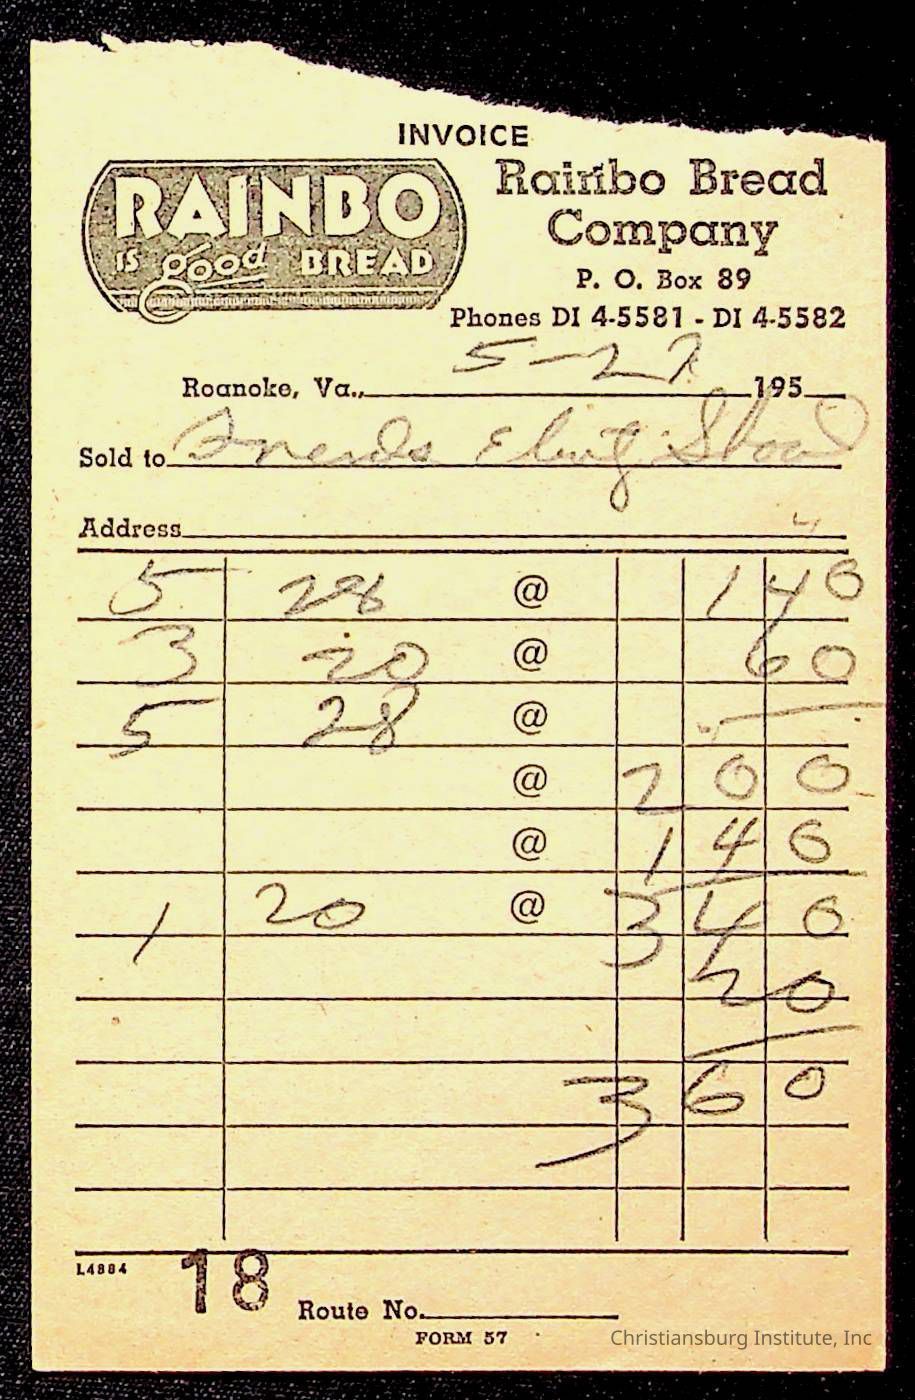 INVOICE
RAINBO
IS good BREAD
Rainbo Bread
Company
P. O. Box 89
Phones DI 4-5581 - DI 4-5582
Roanoke, Va., 5-27 195
Sold to Friends
Address
5 28 @ 1 40
3 20 @ 60
5 28 @
@ 2 00
@ 1 40
1 20 @ 3 40
20
3 60
L4884
18
Route No.
FORM 57
Christiansburg Institute, Inc